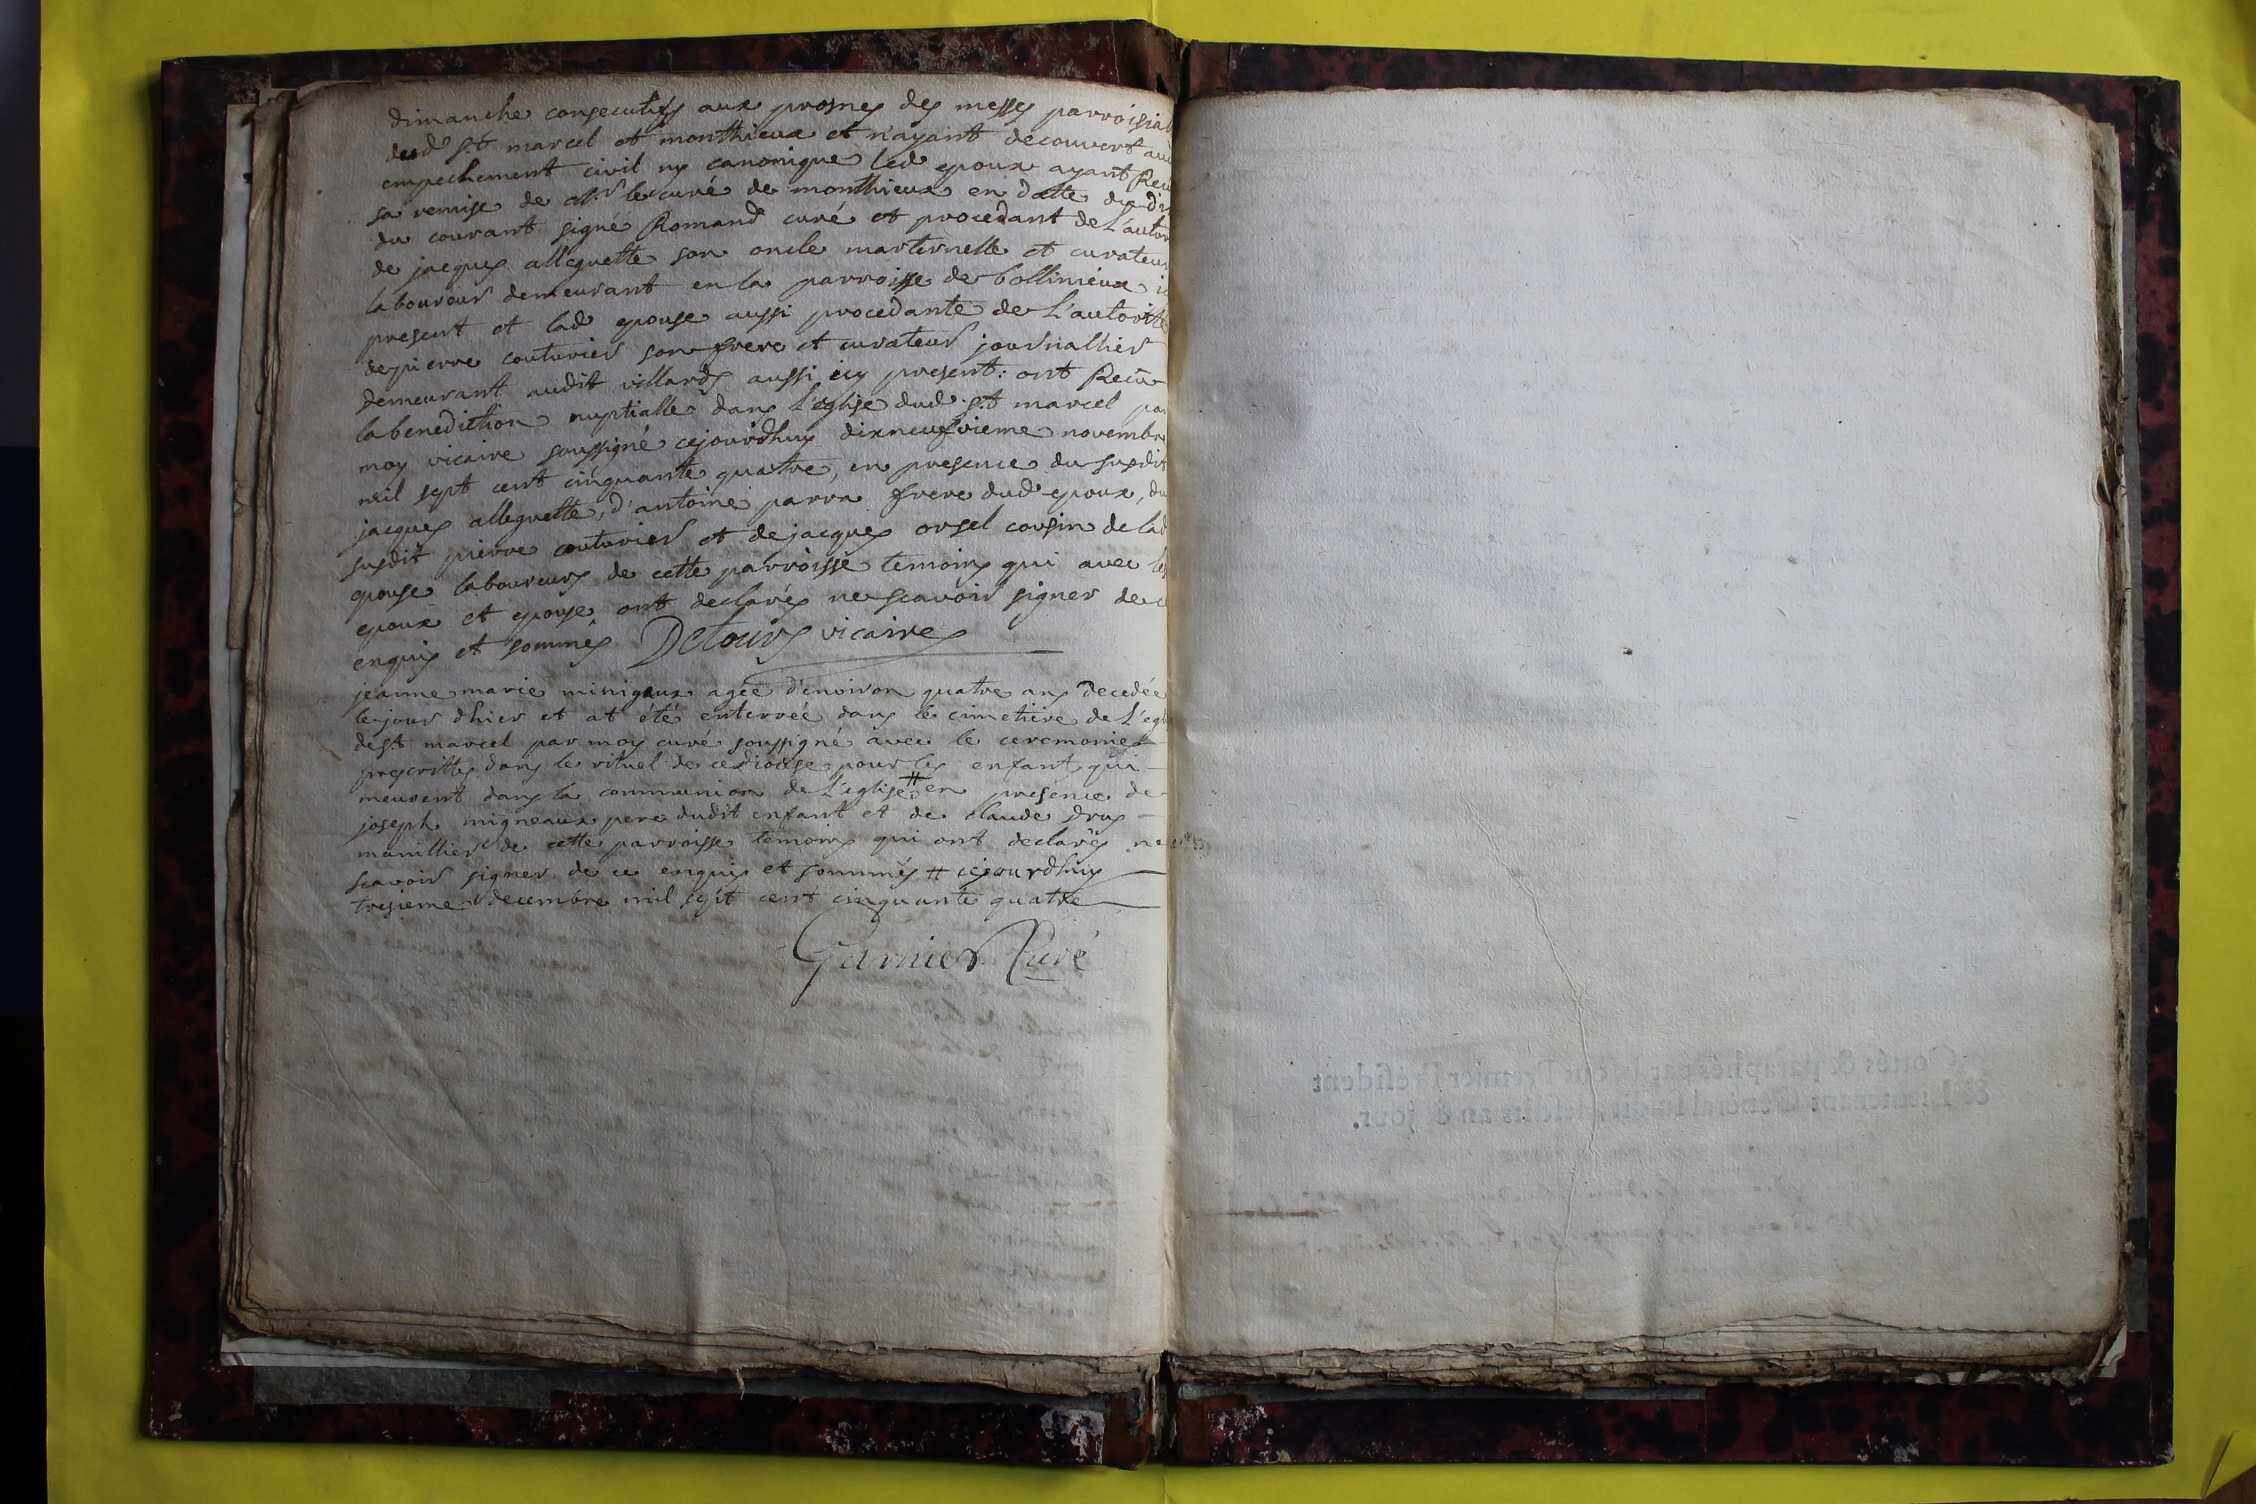 dimanche consecutifs aux prosnes des messes parroisial
dud st marcel et monthieux et n'ayant decouvert auc
empechement civil ny canonique led epoux ayant Recu
sa remise de mr le curé de monthieux en datte du
du courant signé Romand curé et procedant de L'autor
de jacques alleguette son oncle marternelle et curateur
laboureur demeurant en la parroisse de bollinieux
present et lad epouse aussi procedante de L'autorité
de pierre couturier son frere et curateur journallier
demeurant audit villards aussi icy present: ont Recu
la benedithion nuptialle dans L'eglise dud st marcel par
moy vicaire soussigné cejourdhuy dixneufvieme novembre
mil sept cent cinquante quattre, en presence du susdit
jacques alleguette, d'antoine parra frere dud epoux, du
susdit pierre couturier et de jacques orsel cousin de lad
epouse laboureurs de cette parroisse temoins qui avec les
epoux et epouse ont declarés ne scavoir signer de ce
enquis et sommés Detours vicaire
jeanne marie minigaux agée d'environ quatre ans decedée
le jour dhier et at été enterrée dans le cimetiere de L'egl
de st marcel par moy curé soussigné avec le ceremonies
prescrittes dans le rituel de ce diocese pour les enfants qui
meurent dans la communion de L'eglise # en presence de
joseph migneaux pere dudit enfant et de claude drus
manillier de cette parroisse temoins qui ont declarés ne
scavoir signer de ce enquis et sommés # cejourdhuy
tresieme decembre mil sept cent cinquante quatre
Garnier Curé
Cottés & paraphés par Nous Premier Président
& Lieutenant Général susdit, lesdits an & jour.